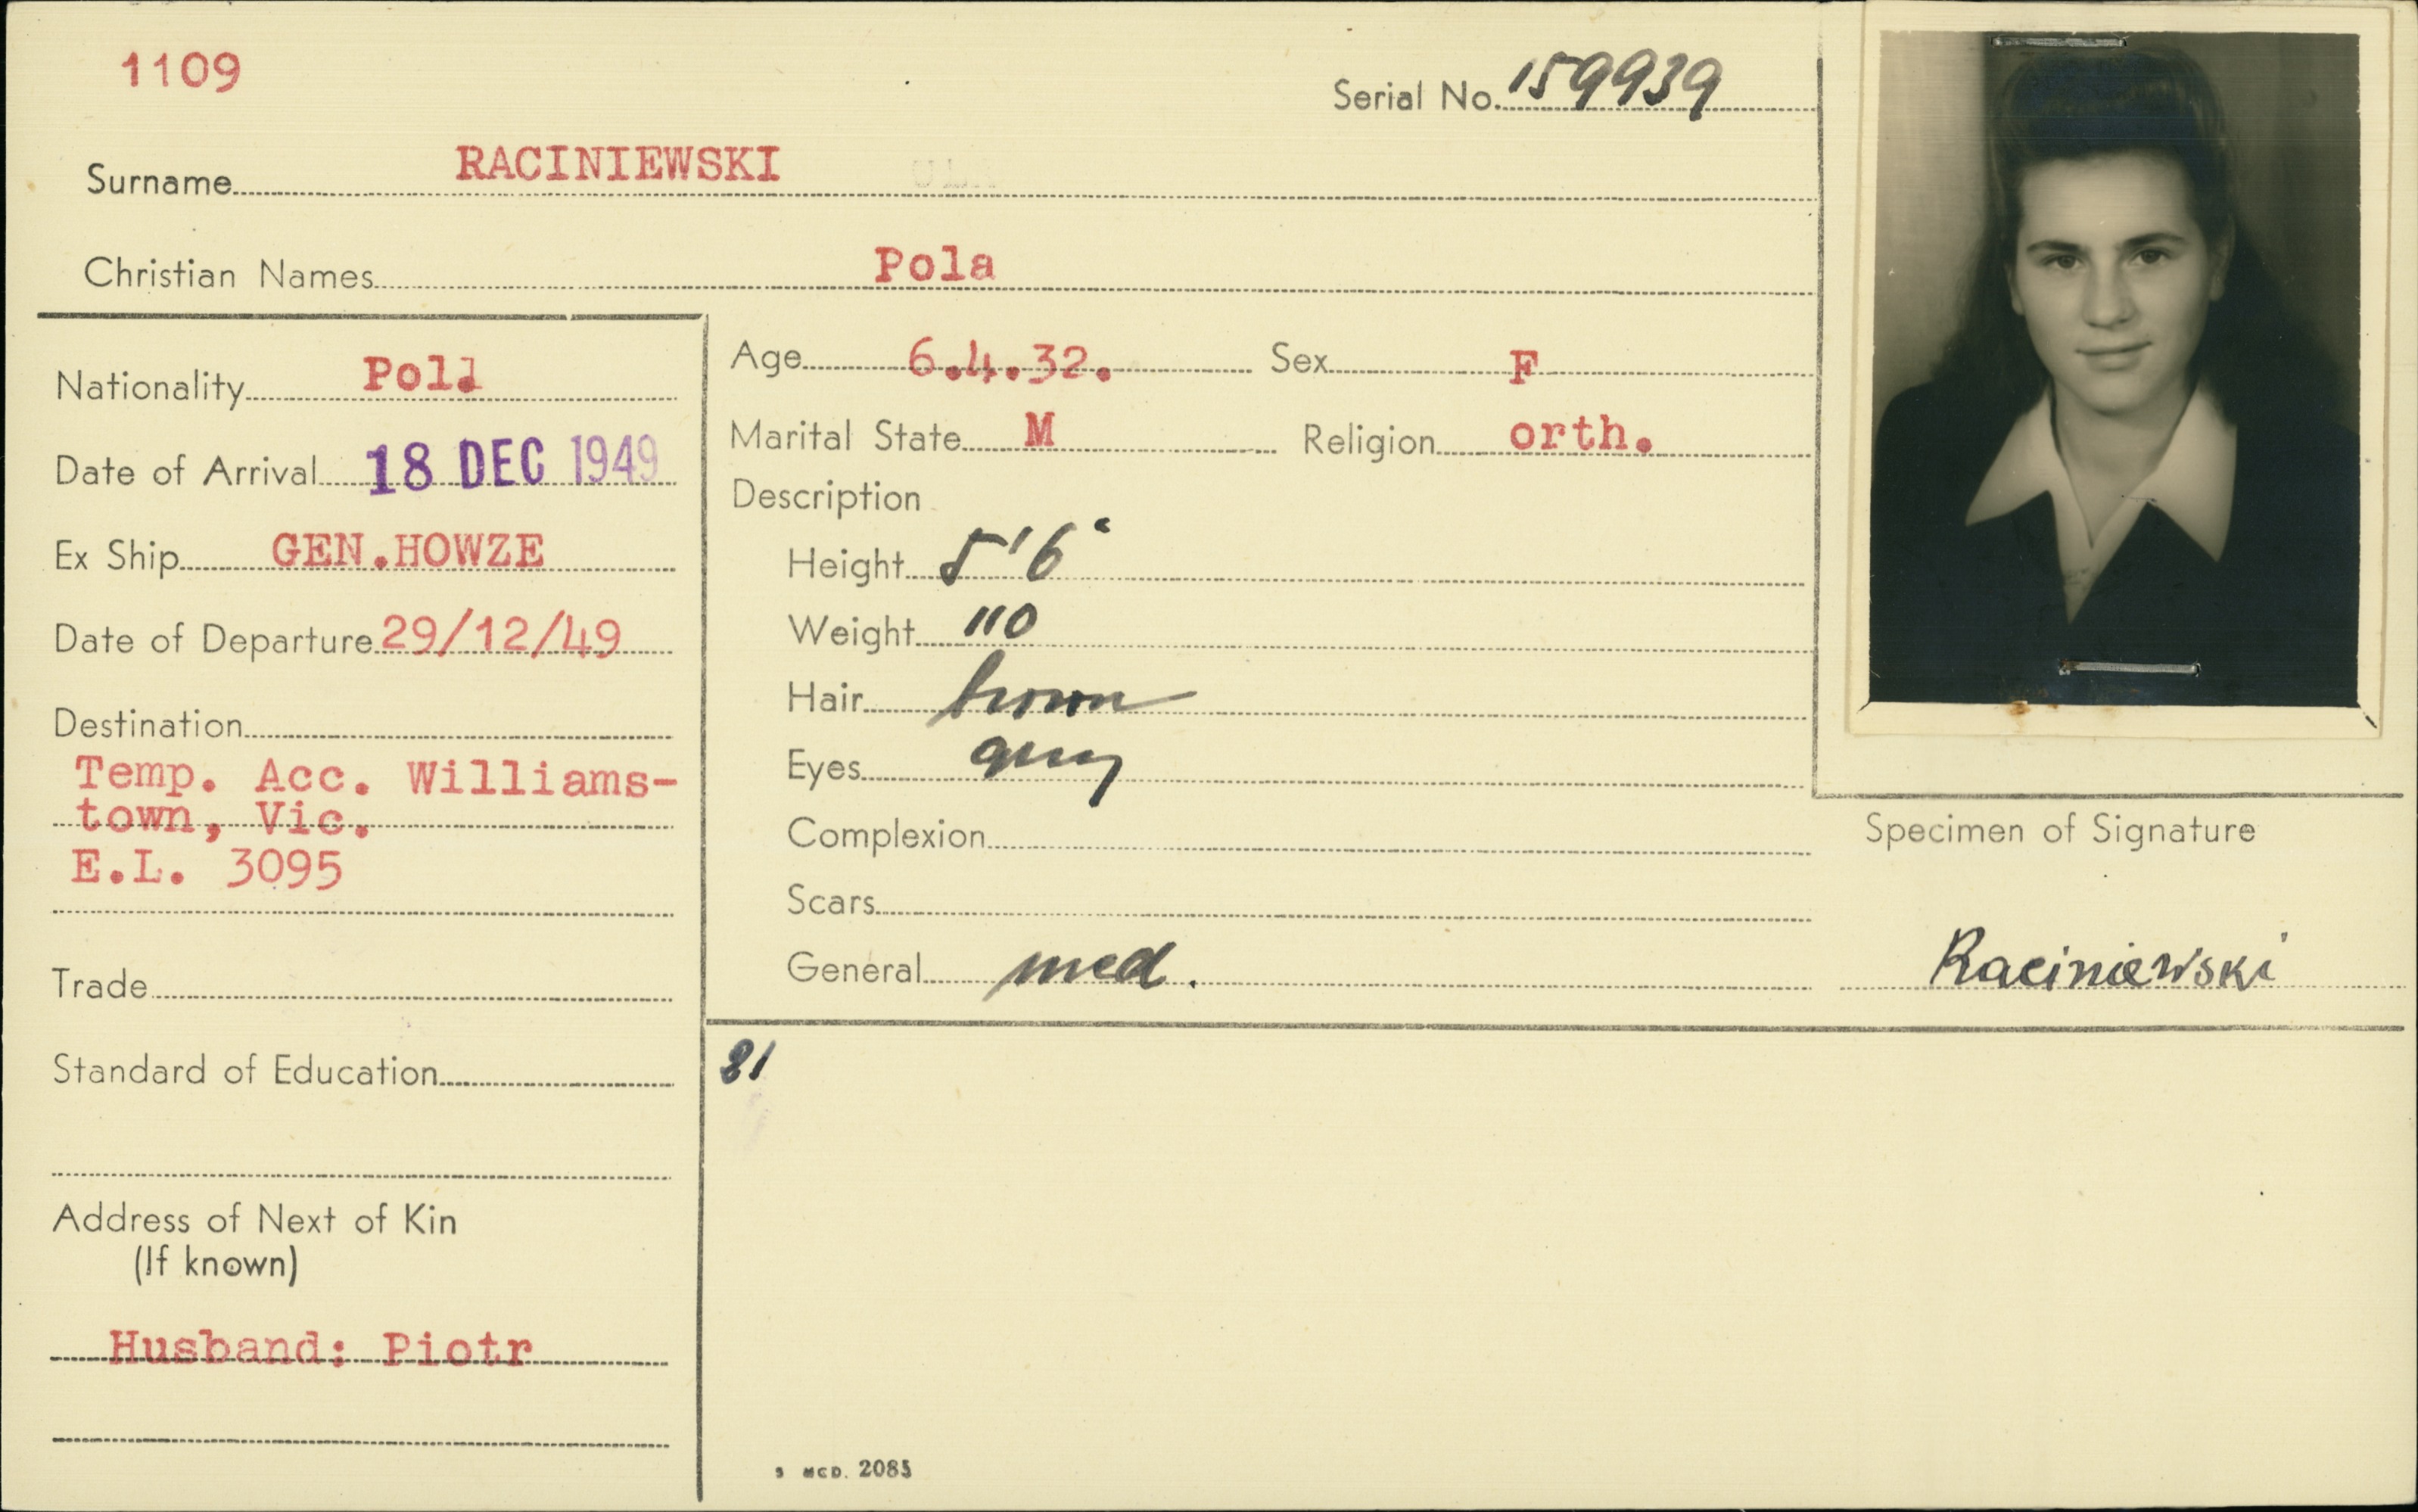 1109
Serial No. 159939
Surname RACINIEWSKI
Christian Names Pola
Nationality Pol.
Date of Arrival 18 DEC 1949
Ex Ship GEN.HOWZE
Date of Departure 29/12/49
Destination
Temp. Acc. Williams-
town, Vic.
E.L. 3095
Trade
Standard of Education
Address of Next of Kin
(If known)
Husband: Piotr
Age 6.4.32. Sex F
Marital State M Religion orth.
Description
Height 5'6"
Weight 110
Hair brown
Eyes grey
Complexion
Scars
General med.
Specimen of Signature
Raciniewski
81
2085